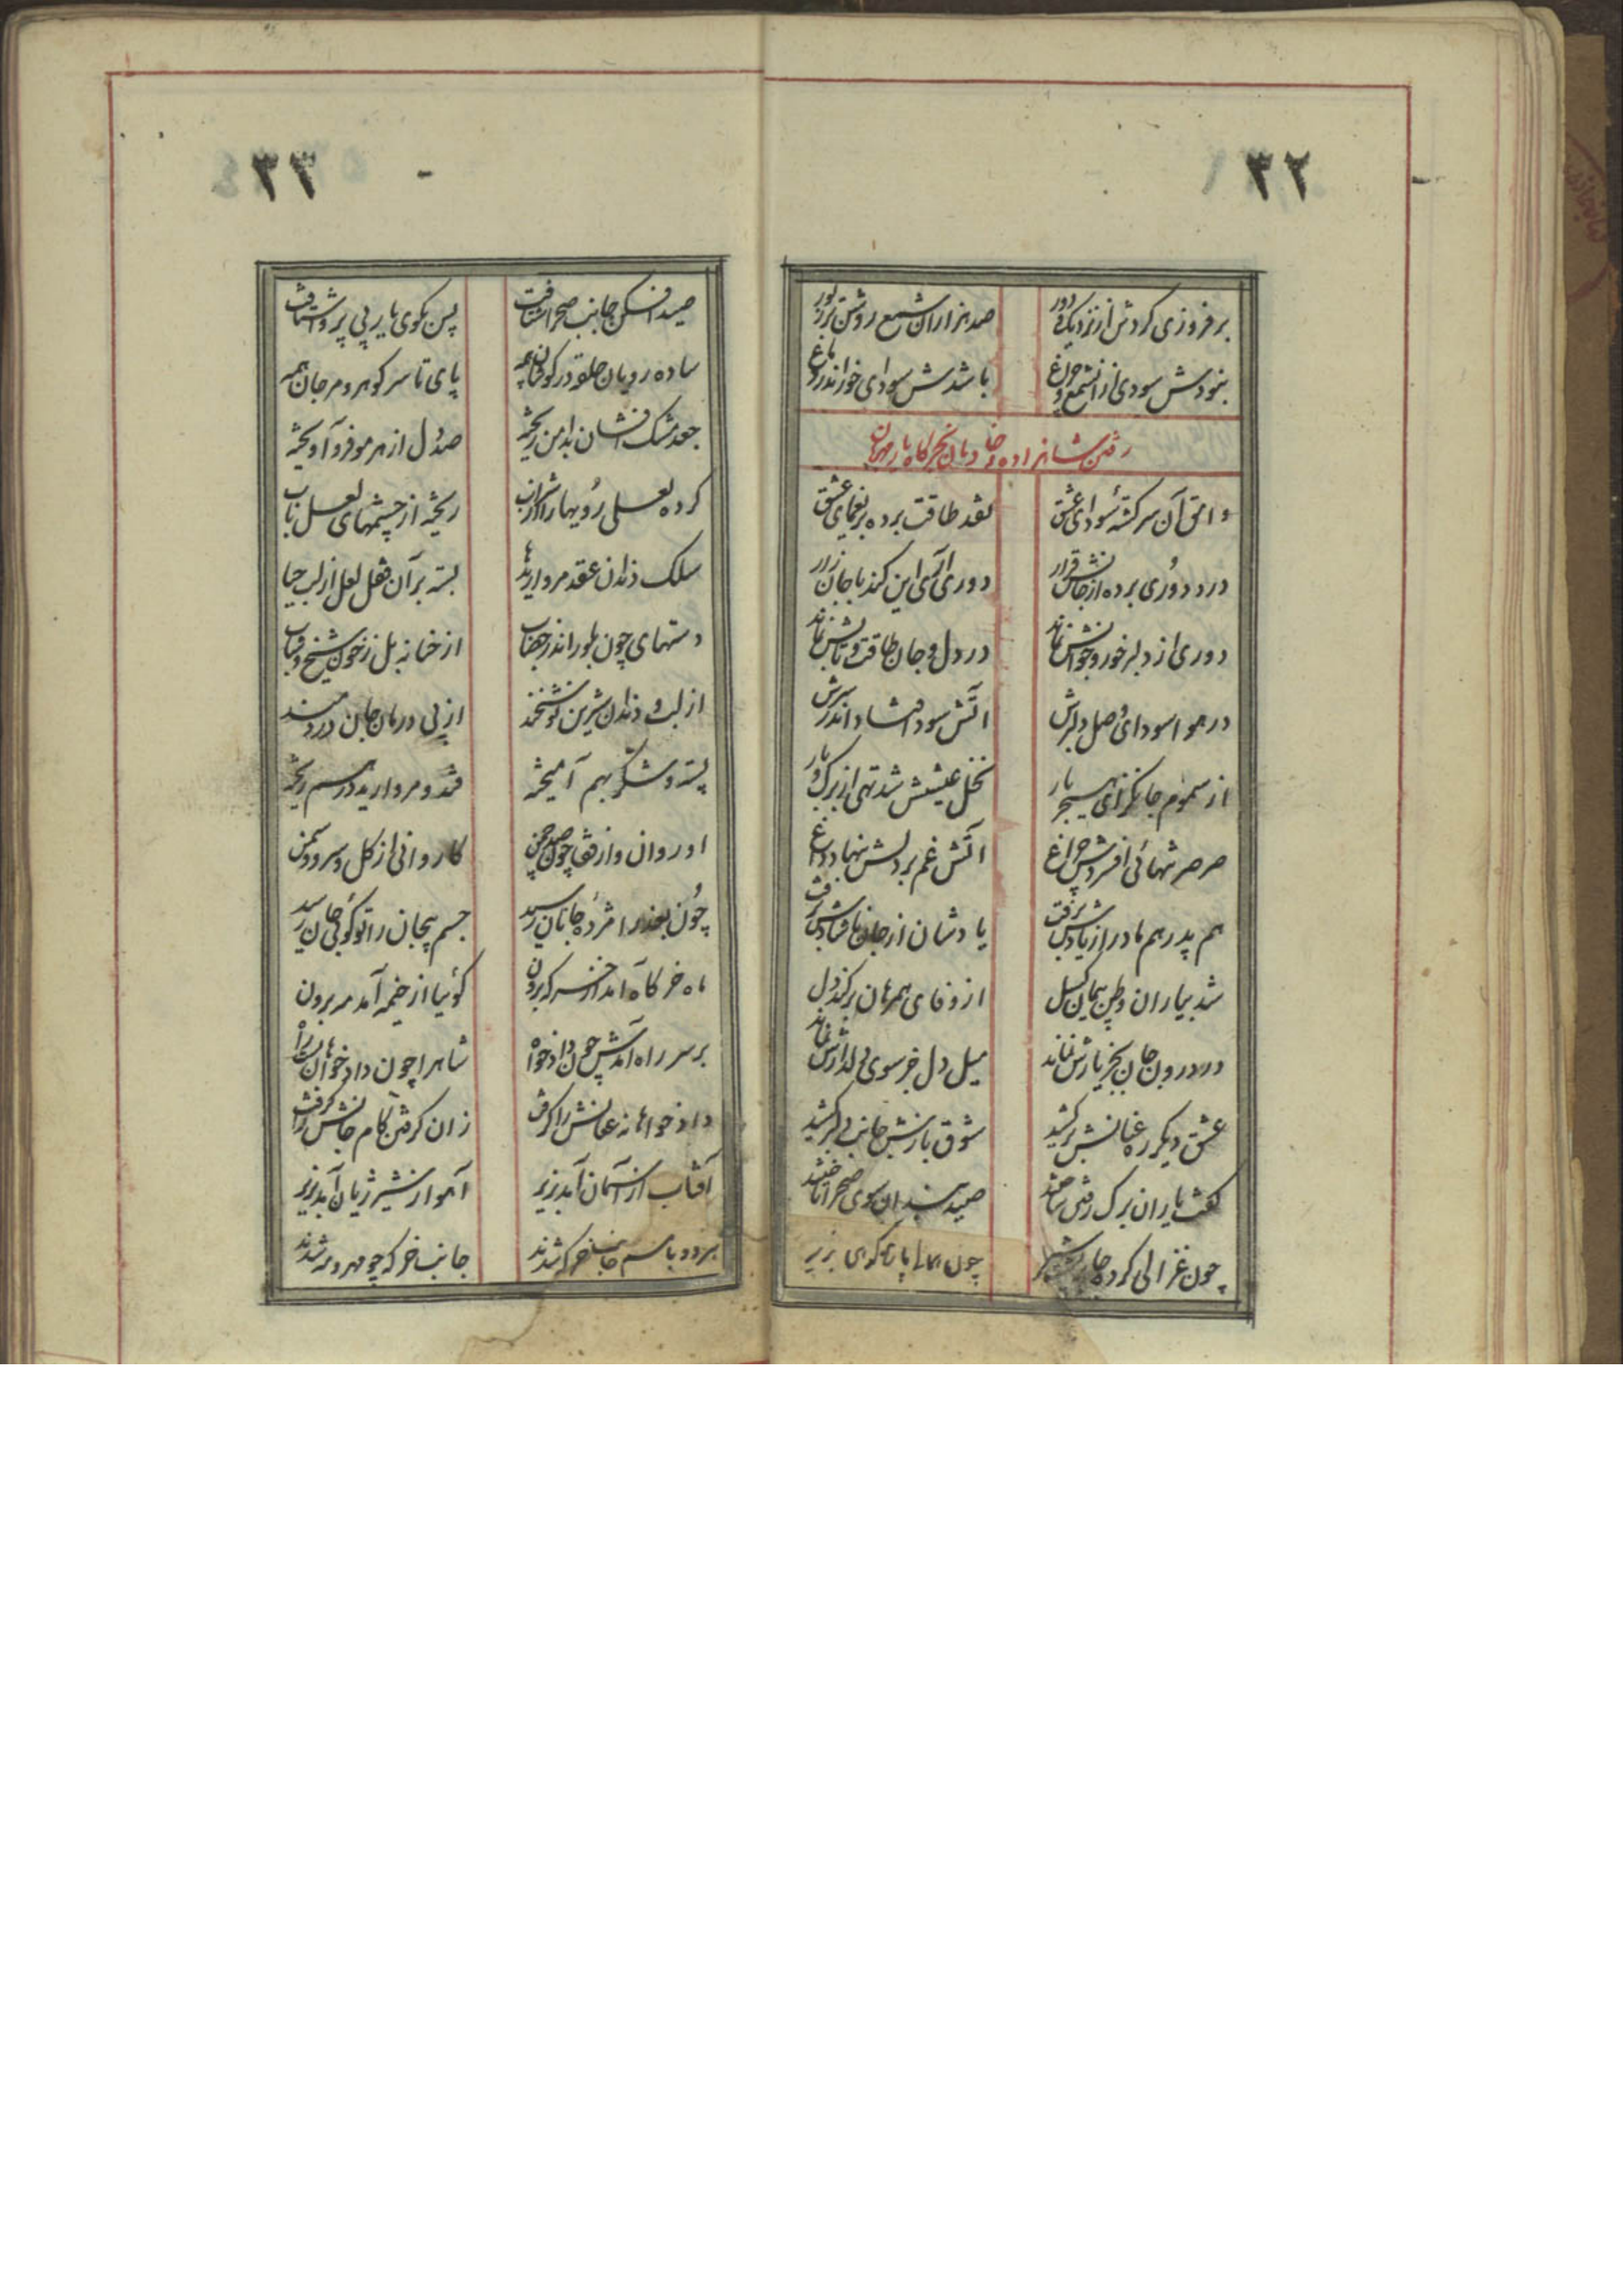 ۳۲
بر فروزی گردش از نزدیک و دور
صد هزاران شمع روشن تر ز نور
نبودش سودی از آن شمع و چراغ
باشدش سودای خور اندر دماغ
رفتن شاهزاده و خادمان بخرگاه یار مهربان
وامق آن سرگشتهٔ سودای عشق
نقد طاقت برده بر یغمای عشق
درد دوری برده از جانش قرار
دوری آری این کند با جان زار
دوری از دلبر خور و خوابش نماند
در دل و جان طاقت و تابش نماند
در هوا سودای وصل دلبرش
آتش سودا فتاد اندر سرش
از سموم جانگزای هجر یار
نخل عیشش شد تهی از برگ و بار
صرصر تنهائی افسردش چراغ
آتش غم بر دلش بنهاد داغ
هم پدر هم مادر از یادش برفت
یادشان از جان ناشادش برفت
شد بیاران وطن پیمان گسل
از وفای همرهان برکند دل
در درون جان بجز یارش نماند
میل دل جز سوی دلدارش نماند
عشق دیگر ره عنانش برکشید
شوق بازش جانب دلبر کشید
گفت یاران برگ رفتن ساختند
صید بندان سوی صحرا تاختند
چون غزالی کرده جا
چون
۳۳
صید افکن جانب صحرا شتافت
پس بکوی یار بی پروا شتافت
ساده رویان حلقه در گوشان همه
پای تا سر گوهر و مرجان همه
جعد مشک افشان بدامن ریخته
صد دل از هر مو فرو آویخته
کرده لعلی رویها را از شراب
ریخته از چشمهای لعل ناب
سلک دندان عقد مروارید ها
بسته بر آن قفل لعل از لب حیا
دستهای چون بلور اندر خضاب
از حنا نه بل ز خون شیخ و شاب
از لب و دندان شیرین نوشخند
از پی درمان جان دردمند
پسته و شکر بهم آمیخته
قند و مروارید در هم ریخته
او روان و از قفا چون صد چمن
کاروانی از گل و سرو و سمن
چون بعذرا مژدهٔ جانان رسید
جسم بیجان را تو گوئی جان رسید
ماه خرگاه آمد از خرگه برون
گوئیا از خیمه آمد مه برون
بر سر راه آمدش چون دادخواه
شاه را چون دادخواهان بست راه
دادخواهانه عنانش را گرفت
زان گرفتن کام جانش را گرفت
آفتاب از آسمان آمد بزیر
آهو از شیر ژیان آمد بزیر
هر دو با هم جانب خرگه شدند
جانب خرگه چو مهر و مه شدند